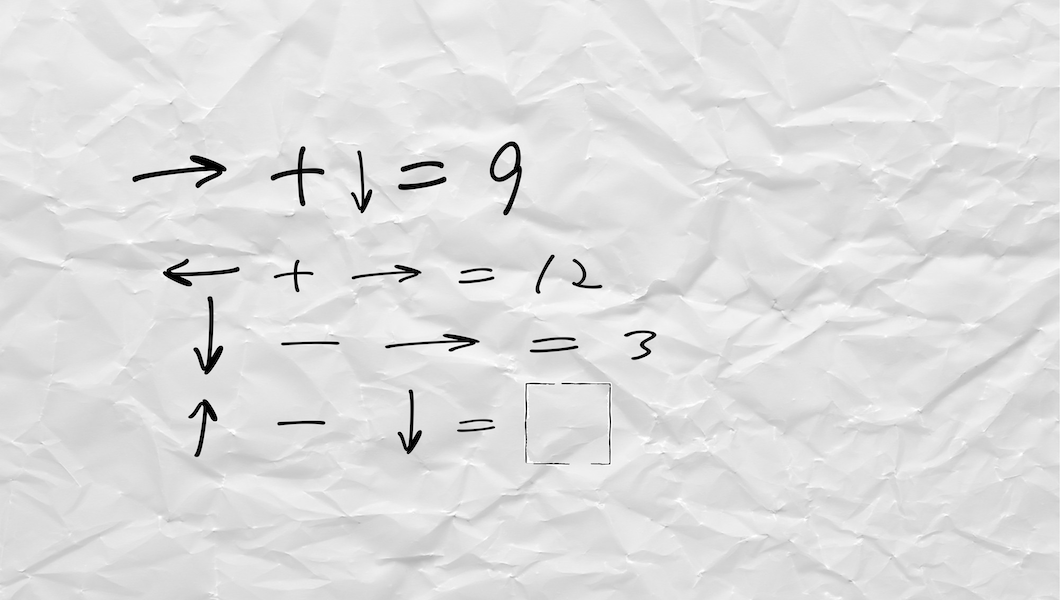 → + ↓ = 9
← + → = 12
↓ - → = 3
↑ - ↓ = □